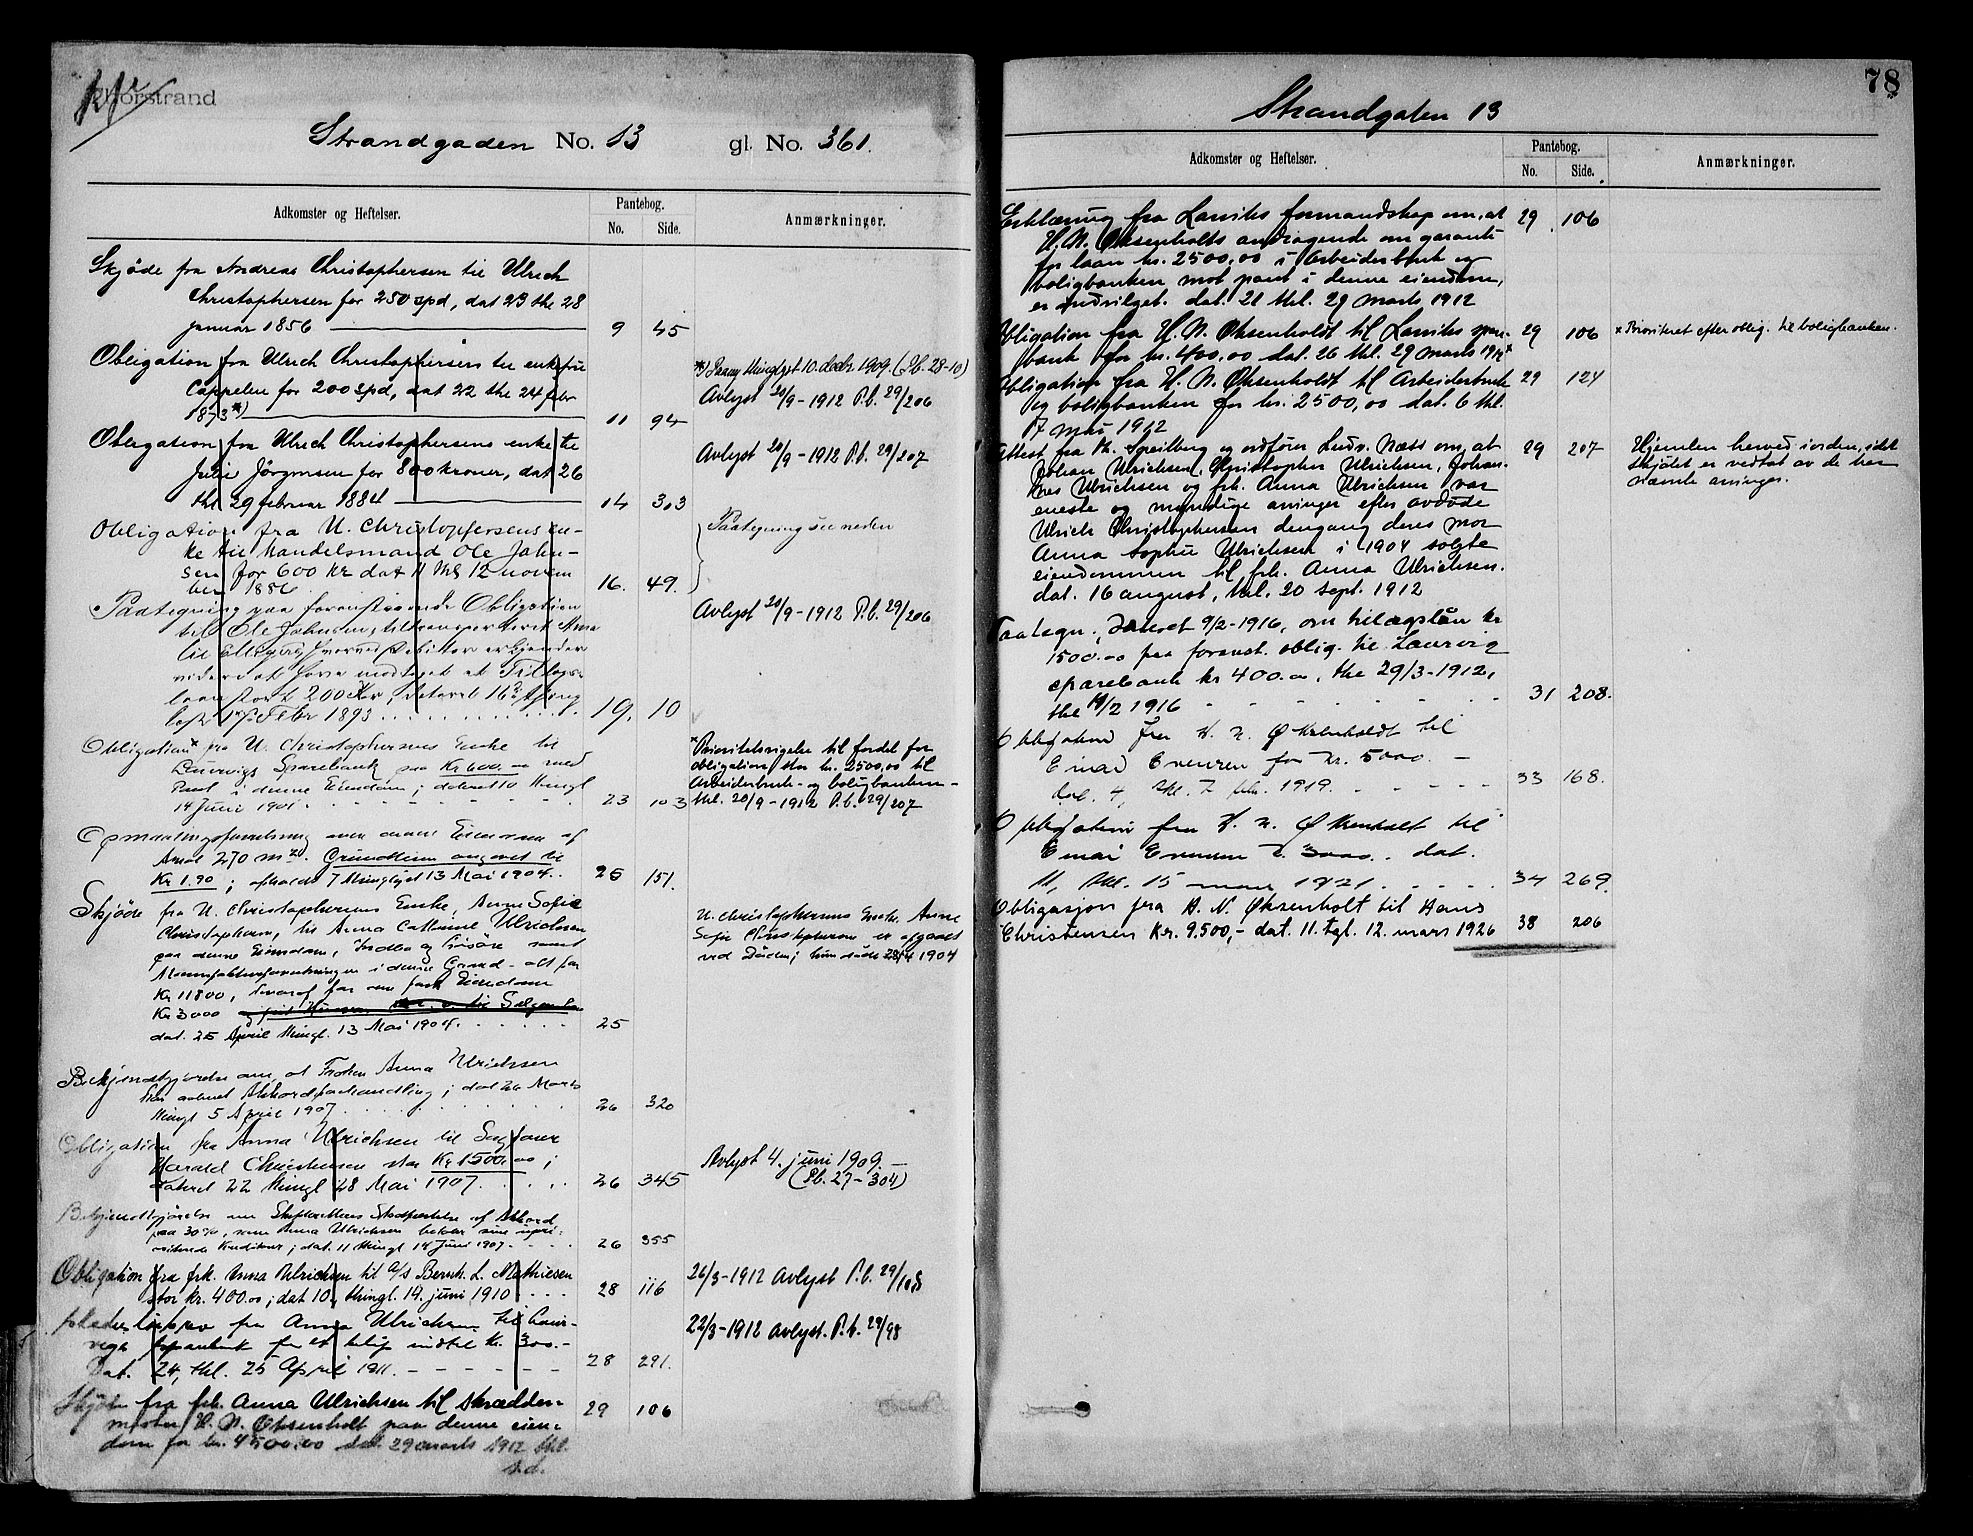 Thorstrand
Strandgaden No. 13 gl. No. 361.
Adkomster og Heftelser.
Pantebog.
No. Side.
Anmærkninger.
Skjöde fra Andreas Christophersen til Ulrich
Christophersen for 250 spd, dat 23 thl 28
januar 1856 9 45
Obligation fra Ulrich Christophersen til enkefru
Cappelen for 200 spd, dat 22 thl 24 febr
1873 *) 11 94
*) Paany thinglyst 10. decbr. 1909. (Pb. 28-10)
Avlyst 20/9-1912 P.b. 29/206
Obligation fra Ulrich Christophersens enke til
Julie Jörgensen for 800 kroner, dat 26
thl 29 februar 1884 14 303
Avlyst 20/9-1912 P.b. 29/207
Obligation fra U. Christophersens en-
ke til handelsmand Ole John-
sen for 600 Kr dat 11 thl 12 novem
ber 1886 16. 49.
Paategning see neden
Paategning paa foranstaaende Obligation
til Ole Johnsen, transporteret
laan stort 200 Kr, dateret 16de
lyst 17de Febr 1893 19. 10
Avlyst 20/9-1912 P.b. 29/206
Obligation* fra U. Christophersens Enke til
Laurvigs Sparebank paa Kr 600.00 med
Pant i denne Eiendom; dateret 10 thingl
14 Juni 1901 23 103
*Prioritetsvigelse til fordel for
obligation stor kr. 2500,00 til
Arbeiderbruk- og boligbanken -
thl. 20/9-1912 P.b. 29/207
Opmaalingsforretning over denne Eiendom af
Areal 270 m2. Grundleien angivet til
Kr 1.90; afholdt 7 thinglyst 13 Mai 1904. 25 151.
Skjöde fra U. Christophersens Enke, Anne Sofie
Christophersen, til Anna Cathrine Ulrichsen
paa denne Eiendom, Indbo og Lösöre samt
Manufakturforretningen i denne Gaard - alt for
Kr 11800, hvoraf for den faste Eiendom
Kr 3000
dat. 25 April thingl. 13 Mai 1904. 25
U. Christophersens Enke, Anne
Sofie Christophersen er afgaaet
ved Döden; hun döde 28/4 1904
Bekjendtgjörelse om, at Fröken Anna Ulrichsen
har aabnet Akkordforhandling; dat 26 Marts
thingl 5 April 1907 26 320
Obligation fra Anna Ulrichsen til Sagförer
Harald Christensen stor Kr 1500.00;
dateret 22 thingl 28 Mai 1907. 26 345
Avlyst 4. juni 1909.
(Pb. 27-304)
Bekjendtgjörelse om Skifterettens Stadfæstelse af Akkord
paa 30 %, som Anna Ulrichsen betaler sine uprio-
riterede Kreditorer; dat. 11 thingl 14 Juni 1907. 26 355
Obligation fra frk. Anna Ulrichsen til A/S Bernh. L. Mathiesen
stor kr. 400.00; dat 10, thingl. 14. juni 1910 28 116
26/3-1912 Avlyst P.b. 29/105
Skadesløsbrev fra Anna Ulrichsen til Laur-
vigs Sparebank for et beløp indtil kr. 300.-
Dat. 24, thl. 25 April 1911. 28 291.
22/3-1912 Avlyst. P.b. 29/98
Skjöte fra frk. Anna Ulrichsen til skrædder-
mester H. N. Øksenholt paa denne eien-
dom for kr. 4500.00 dat. 29 marts 1912 thl.
s.d. 29 106
78
Strandgaten 13
Adkomster og Heftelser.
Pantebog.
No. Side.
Anmærkninger.
Erklæring fra Larviks formandskap om, at
H. N. Øksenholts andragende om garanti
for laan kr. 2500,00 i Arbeiderbruk og
boligbanken mot pant i denne eiendom,
er indvilget. dat. 21 thl. 29 marts 1912 29 106
Obligation fra H. N. Øksenholdt til Larviks spare-
bank for kr. 400,00 dat. 26 thl. 29 marts 1912* 29 106
* Prioritert efter oblig. til boligbanken.
Obligation fra H. N. Øksenholdt til Arbeiderbruk
og boligbanken for kr. 2500,00 dat. 6 thl.
17 mai 1912 29 124
Attest fra Th. Speilberg og ordfører Ludv. Næss om, at
Johan Ulrichsen, Christopher Ulrichsen, Johan-
nes Ulrichsen og frk. Anna Ulrichsen var
eneste og myndige arvinger efter avdøde
Ulrich Christophersen dengang deres mor
Anna Sophie Ulrichsen i 1904 solgte
eiendommen til frk. Anna Ulrichsen.
dat. 16 august, thl. 20 sept. 1912 29 207
Hjemlen herved iorden, idet
skjötet er vedtat av de her
nævnte arvinger.
Paategn., dateret 9/2-1916, om tillægslån kr
1500.00 paa foranst. oblig. til Laurvig
sparebank kr 400.00, thl 29/3-1912,
thl 14/2 1916 31 208.
Obligation fra H. N. Øksenholdt til
Einar Evensen for Kr. 5000. -
dat. 4, thl. 7 febr. 1919. 33 168.
Obligation fra H. N. Øksenholt til
Einar Evensen 3000. dat.
11, thl. 15 mars 1921. 34 269.
Obligasjon fra H. N. Øksenholt til Hans
Christensen Kr. 9.500,- dat. 11. tgl. 12. mars 1926 38 206